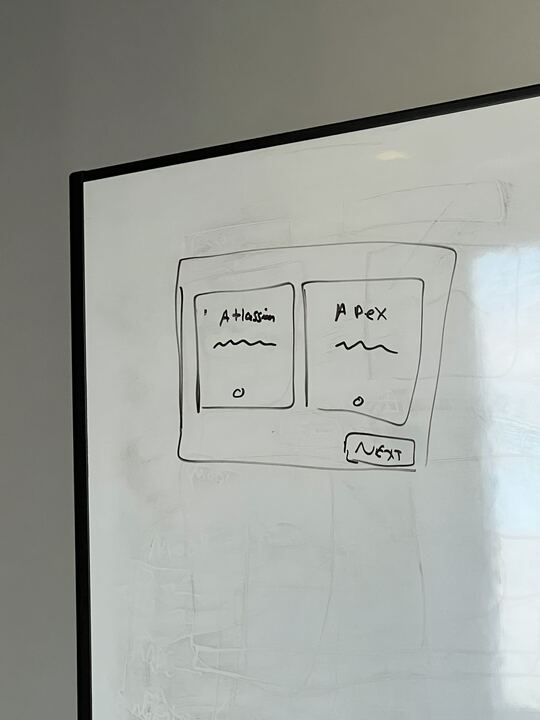 Atlassian
Apex
Next